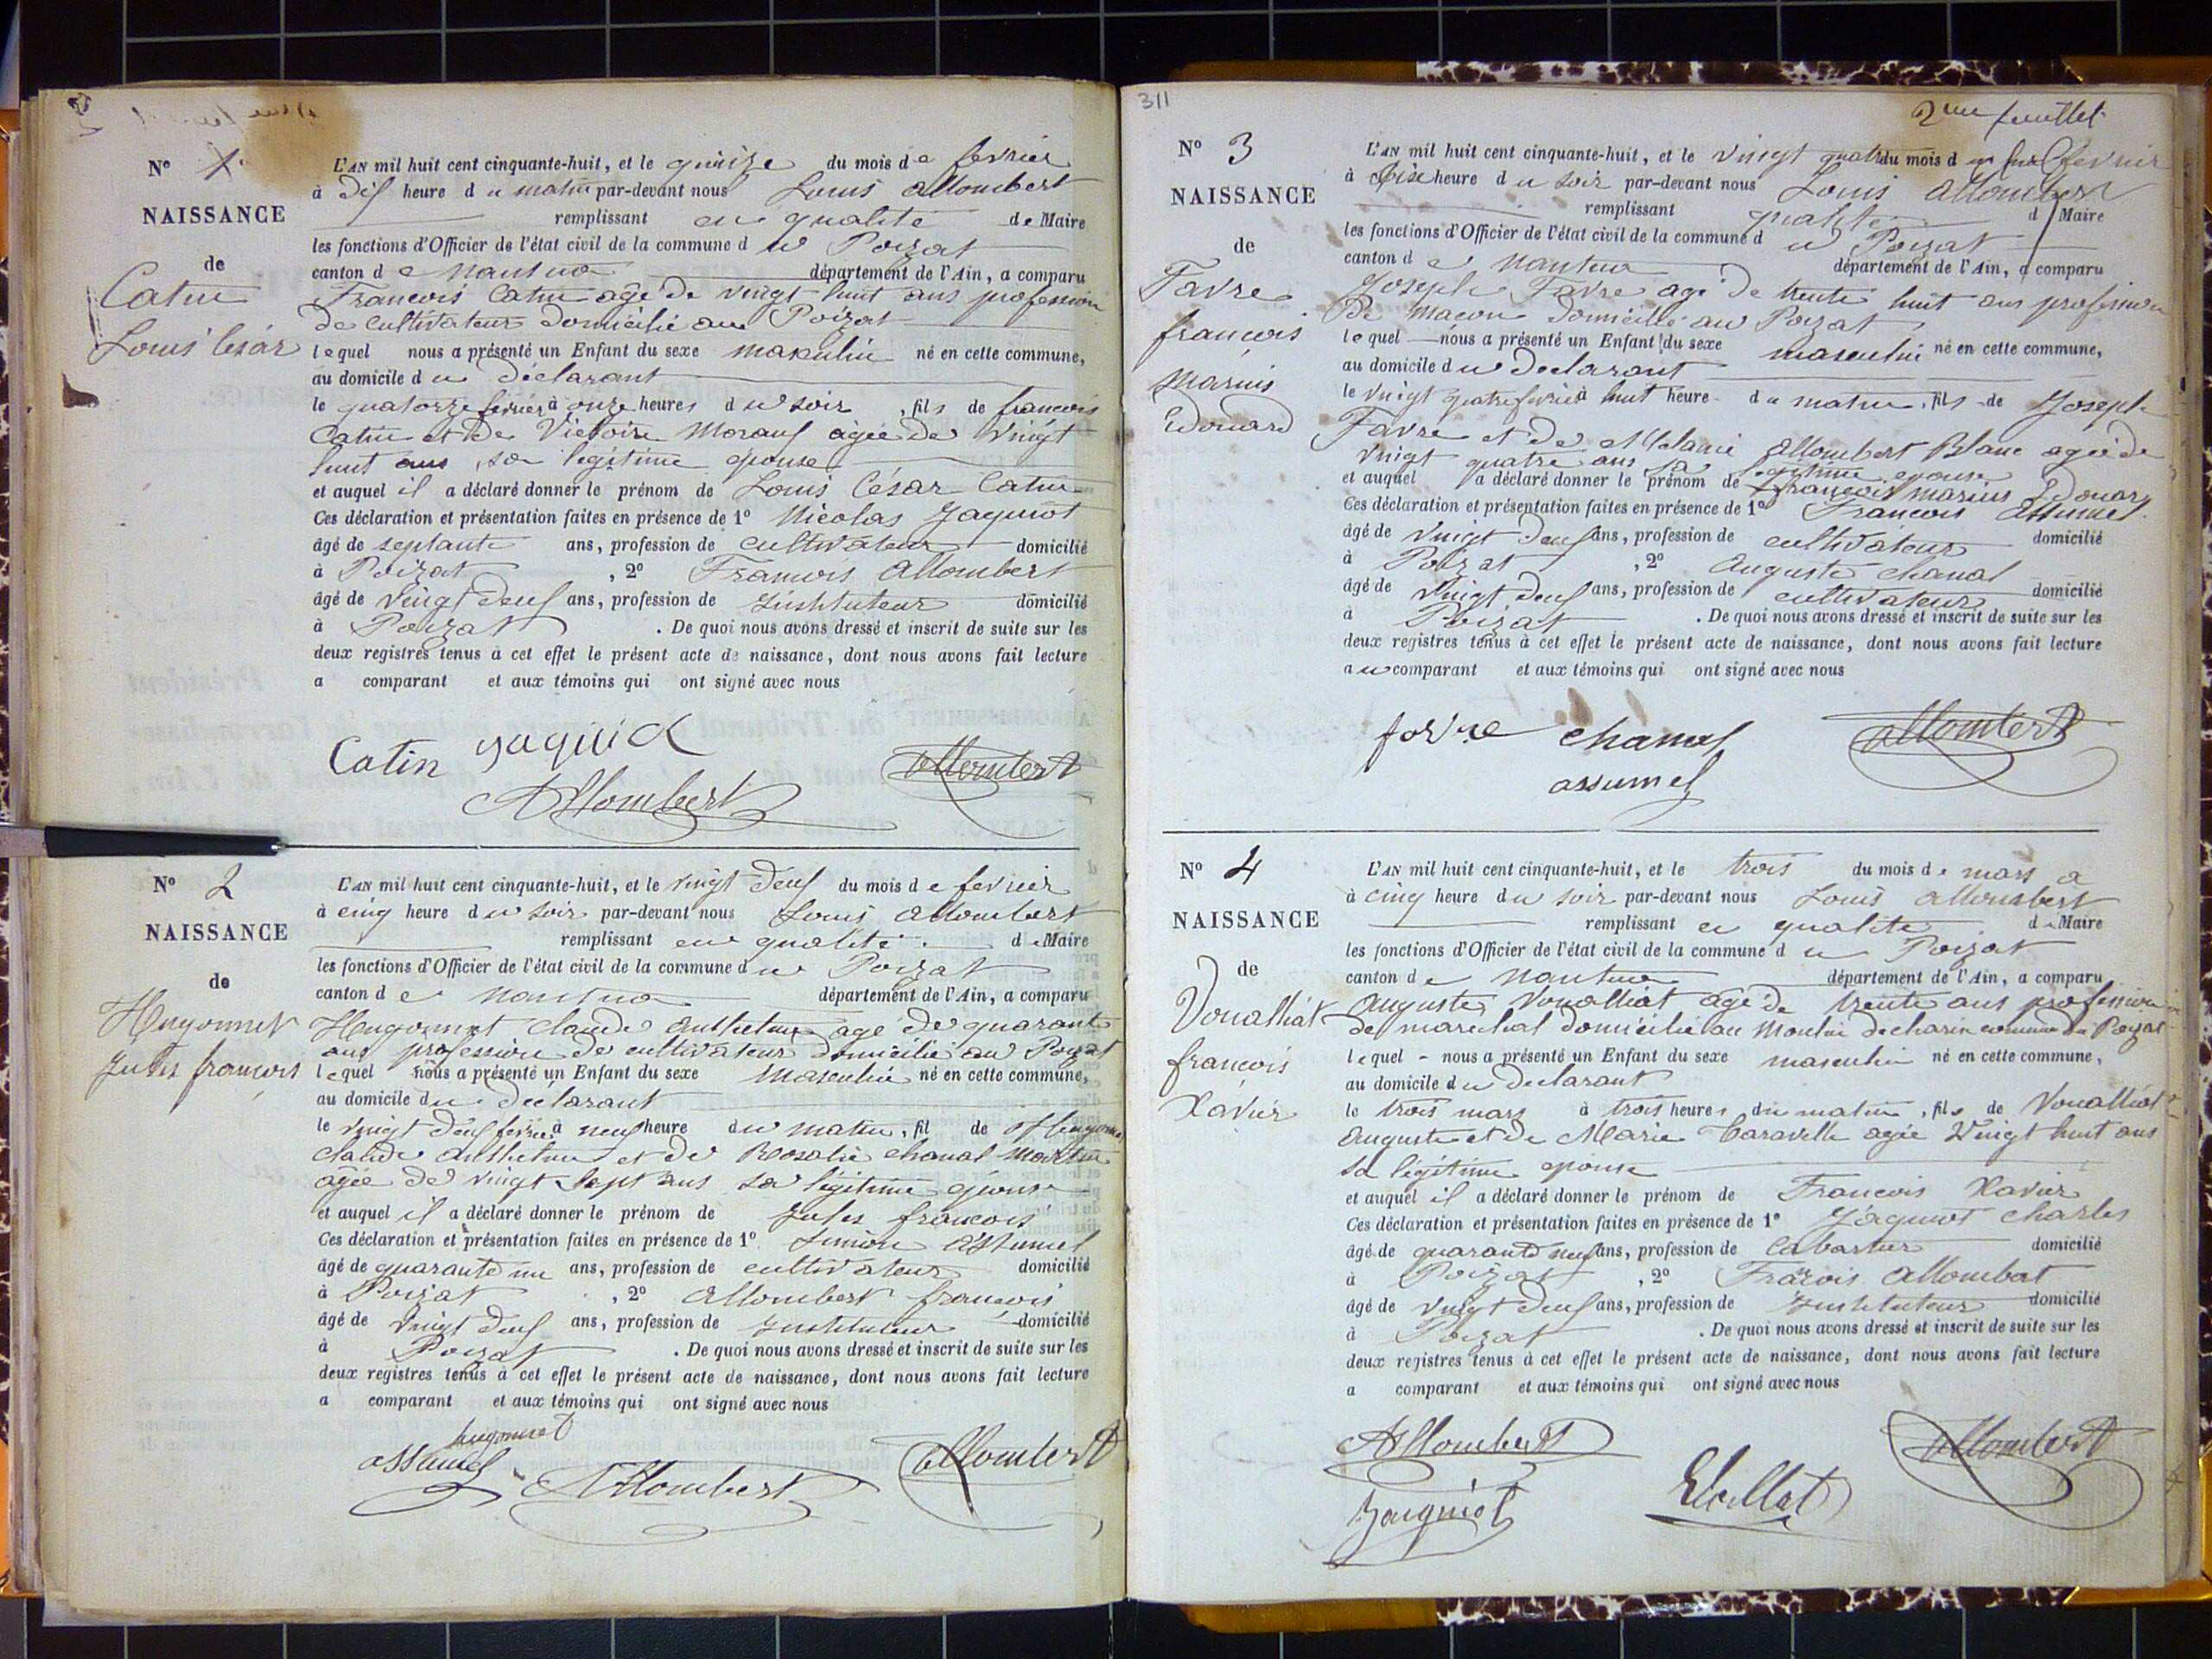 N° 1
NAISSANCE
de
Catin
Louis César
L'AN mil huit cent cinquante-huit, et le quinze du mois de fevrier
à dix heure du matin par-devant nous Louis Allombert
remplissant en qualité de Maire
les fonctions d'Officier de l'état civil de la commune du Poizat
canton de Nantua département de l'Ain, a comparu
Francois Catin age de vingt huit ans profession
de cultivateur domicilié au Poizat
lequel nous a présenté un Enfant du sexe masculin né en cette commune,
au domicile du déclarant
le quatorze fevrier à onze heures du soir, fils de francois
Catin et de Victoire Moraux agée de vingt
huit ans, sa legitime épouse
et auquel il a déclaré donner le prénom de Louis César Catin
Ces déclaration et présentation faites en présence de 1° Nicolas Jaquiot
âgé de septante ans, profession de cultivateur domicilié
à Poizat, 2° Francois Allombert
âgé de vingt deux ans, profession de instituteur domicilié
à Poizat. De quoi nous avons dressé et inscrit de suite sur les
deux registres tenus à cet effet le présent acte de naissance, dont nous avons fait lecture
a comparant et aux témoins qui ont signé avec nous
Catin
Allombert Allombert
N° 2
NAISSANCE
de
Hugonnet
Jules françois
L'AN mil huit cent cinquante-huit, et le vingt deux du mois de fevrier
à cinq heure du soir par-devant nous Louis Allombert
remplissant en qualité de Maire
les fonctions d'Officier de l'état civil de la commune du Poizat
canton de Nantua département de l'Ain, a comparu
Hugonnet Claude Anthelme agé de quarante
ans profession de cultivateur domicilié au Poizat
lequel nous a présenté un Enfant du sexe Masculin né en cette commune,
au domicile du déclarant
le vingt deux fevrier à neuf heure du matin, fil de Hugonnet
Claude Anthelme et de Roosalie Chanal
âgée de vingt sept ans sa légitime épouse
et auquel il a déclaré donner le prénom de Jules francois
Ces déclaration et présentation faites en présence de 1° Simon Assumel
âgé de quarante un ans, profession de cultivateur domicilié
à Poizat, 2° Allombert francois
âgé de vingt deux ans, profession de instituteur domicilié
à Poizat. De quoi nous avons dressé et inscrit de suite sur les
deux registres tenus à cet effet le présent acte de naissance, dont nous avons fait lecture
a comparant et aux témoins qui ont signé avec nous
hugonnet
assumel Allombert Allombert
311
2me feuillet
N° 3
NAISSANCE
de
Favre
françois
Marius
Edouard
L'AN mil huit cent cinquante-huit, et le vingt quatre du mois d fevrier
à heure du soir par-devant nous Louis Allombert
remplissant qualité d Maire
les fonctions d'Officier de l'état civil de la commune du Poizat
canton de Nantua département de l'Ain, a comparu
Joseph Favre agé de trente huit ans profession
De macon domicilié au Poizat
lequel nous a présenté un Enfant du sexe masculin né en cette commune,
au domicile du declarant
le vingt quatre fevrier à huit heure du matin, fils de Joseph
Favre et de Melanie Allombert Blanc agée de
vingt quatre ans sa legitime epouse
et auquel a déclaré donner le prénom de françois marius Edouard
Ces déclaration et présentation faites en présence de 1° Francois Assumel
âgé de vingt deux ans, profession de cultivateur domicilié
à Poizat, 2° Auguste Chanal
âgé de vingt deux ans, profession de cultivateur domicilié
à Poizat. De quoi nous avons dressé et inscrit de suite sur les
deux registres tenus à cet effet le présent acte de naissance, dont nous avons fait lecture
au comparant et aux témoins qui ont signé avec nous
favre chanal Allombert
assumel
N° 4
NAISSANCE
de
Voualliat
francois
Xavier
L'AN mil huit cent cinquante-huit, et le trois du mois de mars a
à cinq heure du soir par-devant nous Louis Allombert
remplissant en qualite de Maire
les fonctions d'Officier de l'état civil de la commune du Poizat
canton de Nantua département de l'Ain, a comparu
Auguste Voualliat age de trente ans profession
de marechal domicilié au Moulin de charix commune du Poizat
lequel nous a présenté un Enfant du sexe masculin né en cette commune,
au domicile du declarant
le trois mars à trois heures du matin, fils de Voualliat
Auguste et de Marie Caravelle agée Vingt huit ans
sa légitime epouse
et auquel il a déclaré donner le prénom de Francois Xavier
Ces déclaration et présentation faites en présence de 1° Jaquiot Charles
âgé de quarante neuf ans, profession de domicilié
à Poizat, 2° Francois Allombert
âgé de vingt deux ans, profession de instituteur domicilié
à Poizat. De quoi nous avons dressé et inscrit de suite sur les
deux registres tenus à cet effet le présent acte de naissance, dont nous avons fait lecture
a comparant et aux témoins qui ont signé avec nous
Allombert Allombert
Jaquiot